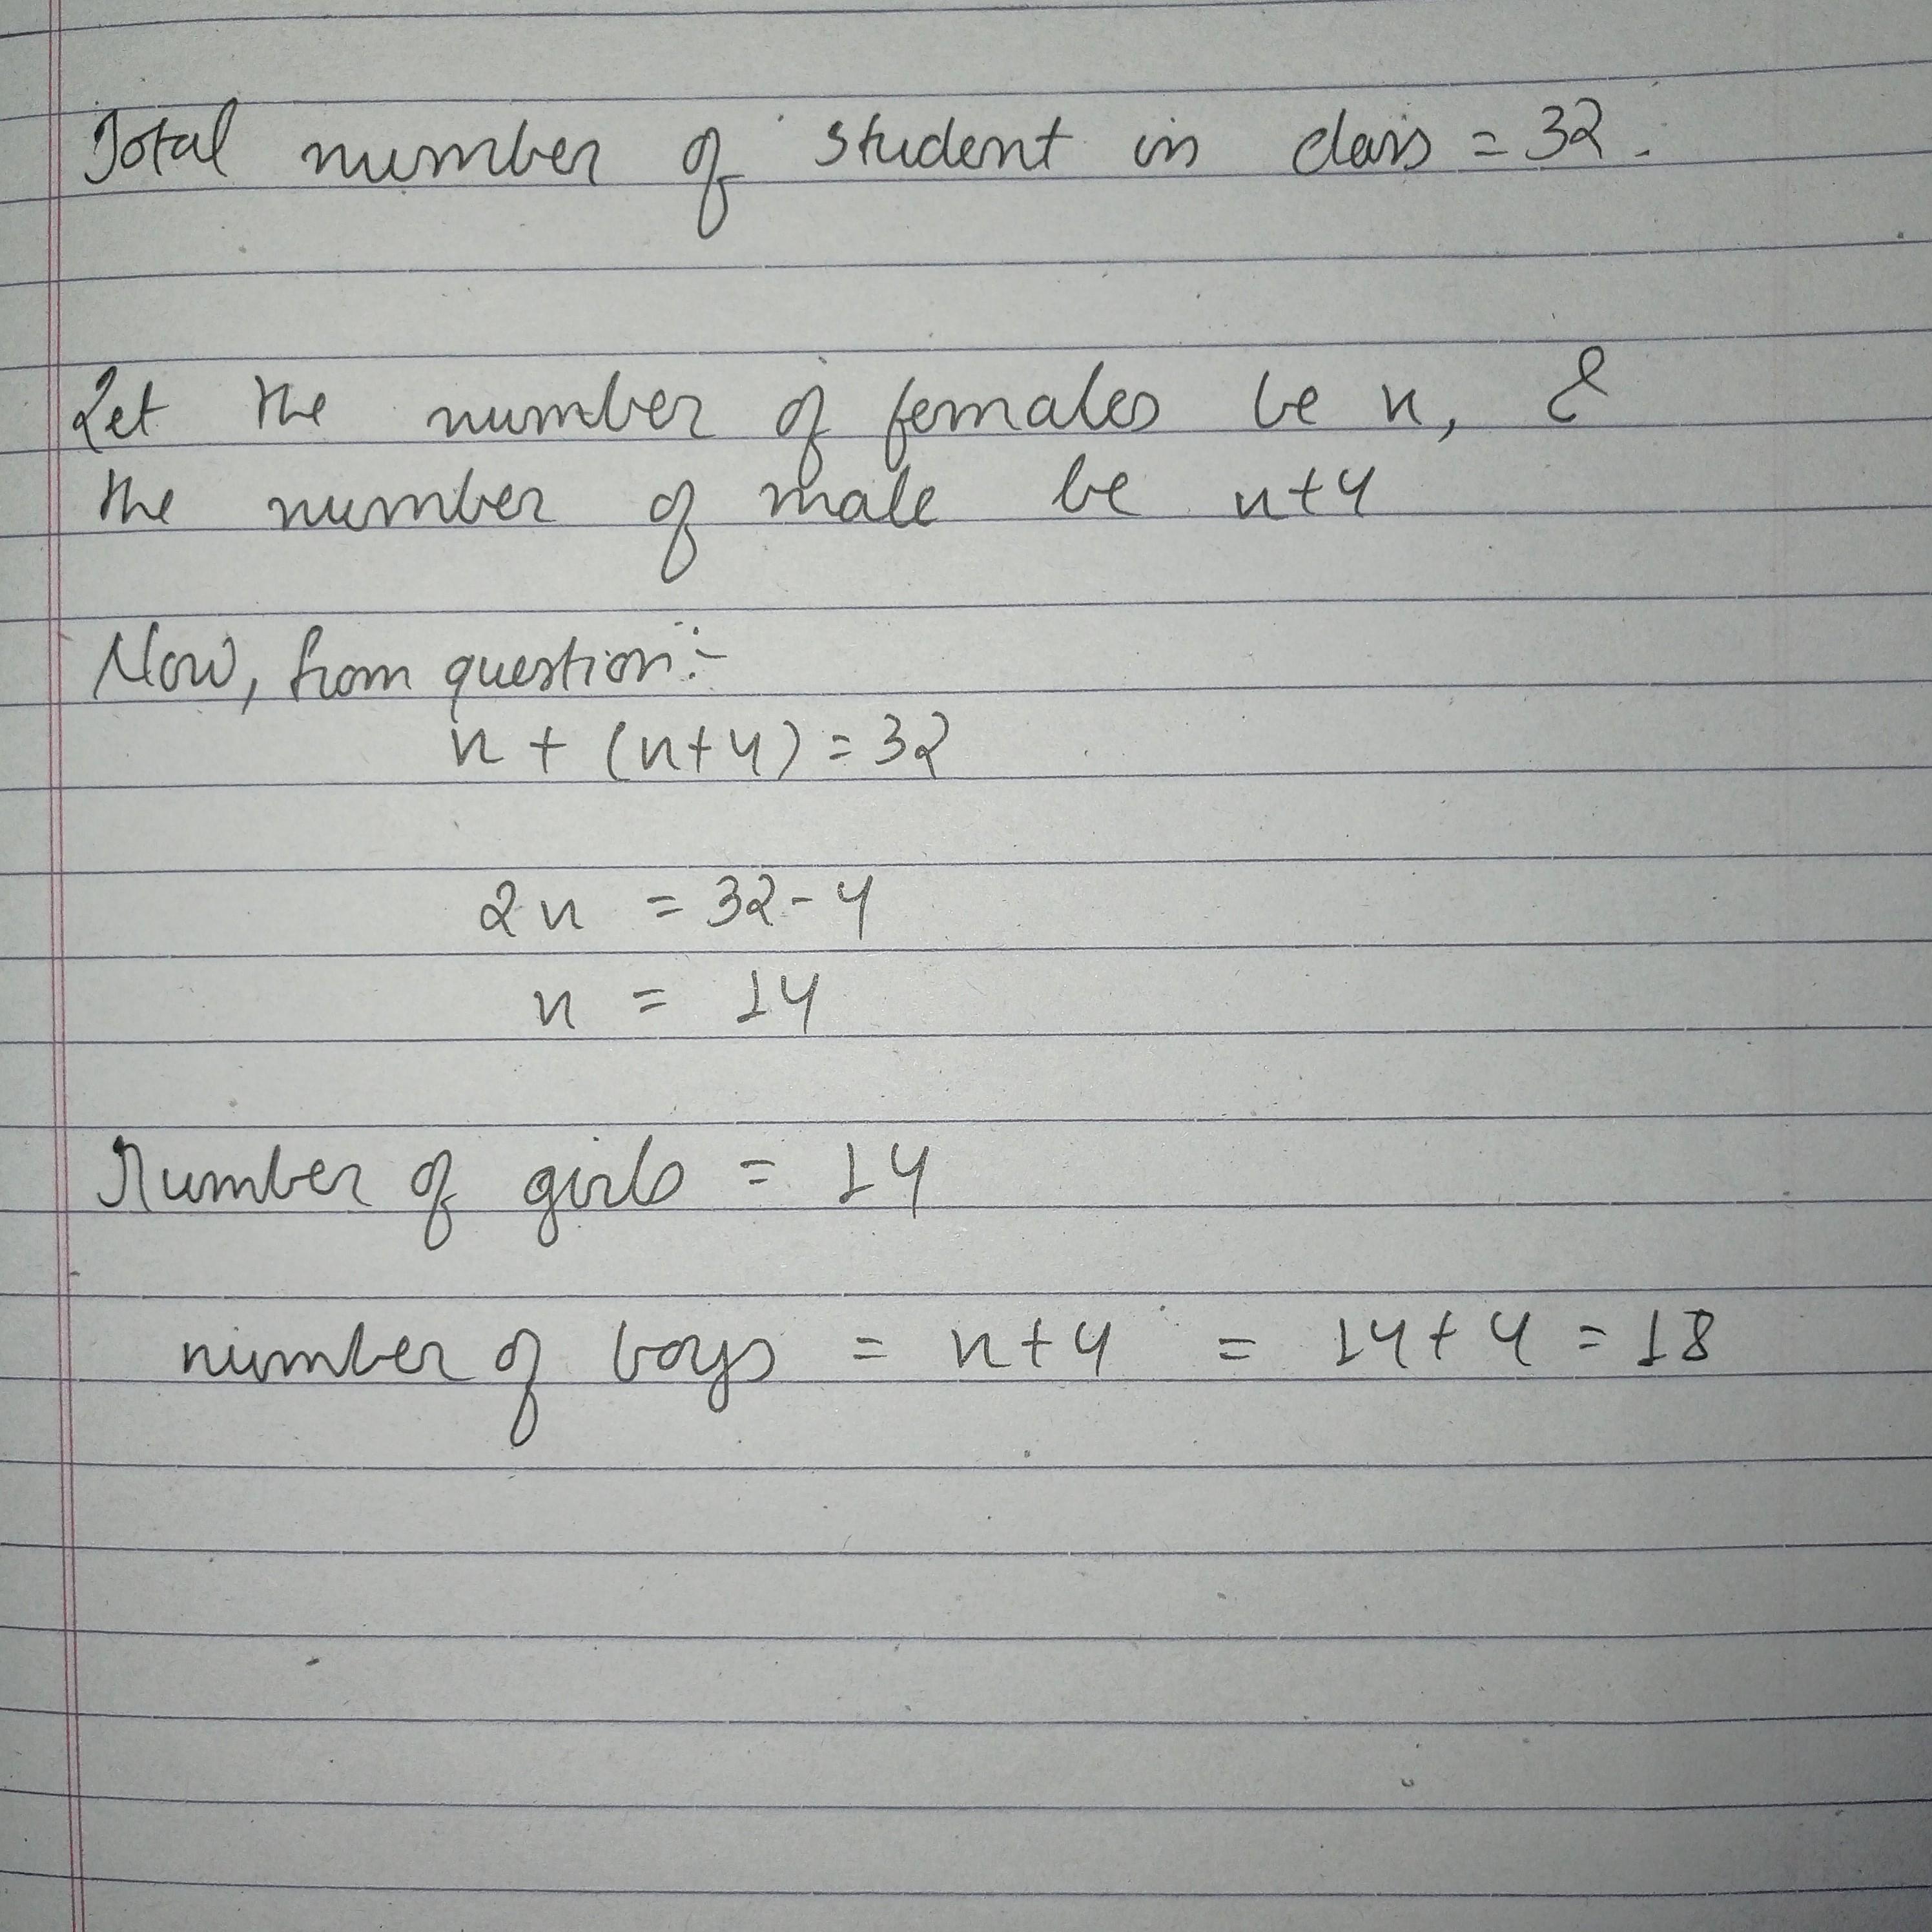 Total number of student in class = 32.
Let the number of females be x, &
the number of male be x+4
Now, from question:-
x + (x+4) = 32
2x = 32-4
x = 14
Number of girls = 14
number of boys = x+4 = 14+4 = 18